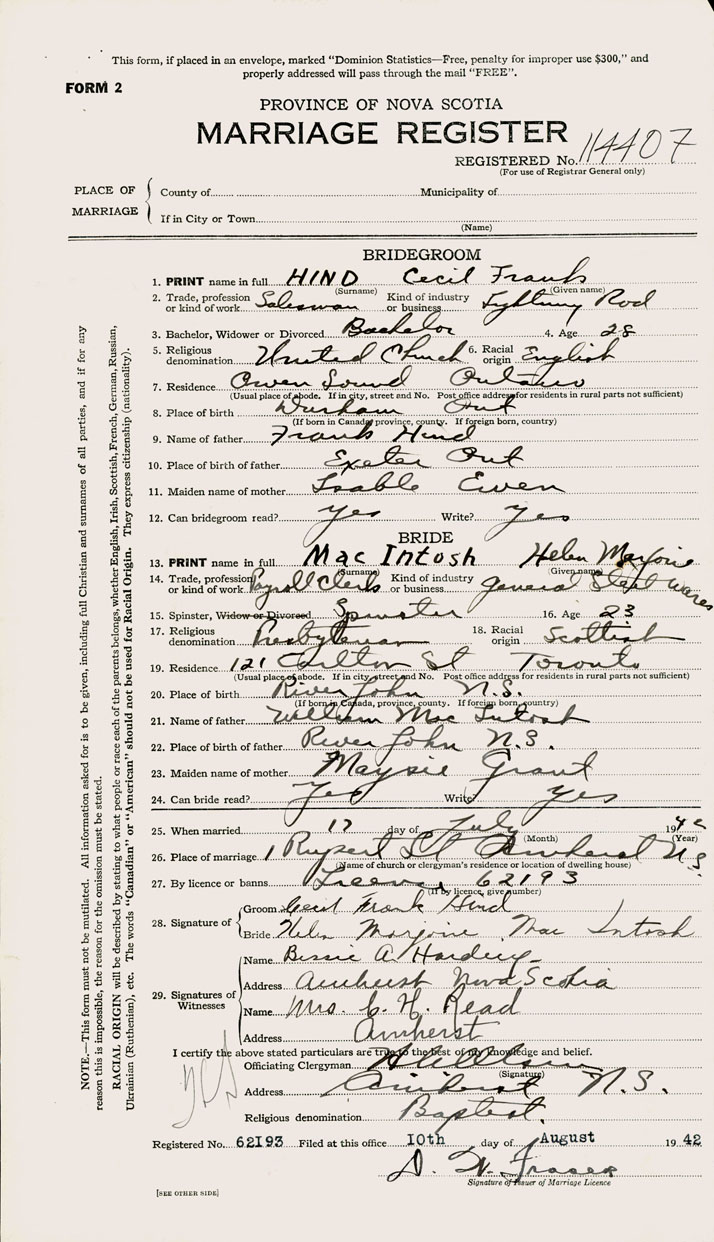 This form, if placed in an envelope, marked "Dominion Statistics—Free, penalty for improper use $300," and
properly addressed will pass through the mail "FREE".
FORM 2
PROVINCE OF NOVA SCOTIA
MARRIAGE REGISTER
REGISTERED No. 114407
(For use of Registrar General only)
PLACE OF MARRIAGE
County of Municipality of
If in City or Town
(Name)
BRIDEGROOM
1. PRINT name in full HIND Cecil Frank
(Surname) (Given name)
2. Trade, profession or kind of work Salesman Kind of industry or business Lightning Rod
3. Bachelor, Widower or Divorced Bachelor 4. Age 28
5. Religious denomination United Church 6. Racial origin English
7. Residence Owen Sound Ontario
(Usual place of abode. If in city, street and No. Post office address for residents in rural parts not sufficient)
8. Place of birth Durham Ont
(If born in Canada, province, county. If foreign born, country)
9. Name of father Frank Hind
10. Place of birth of father Exeter Ont
11. Maiden name of mother Isable Ewen
12. Can bridegroom read? yes Write? yes
BRIDE
13. PRINT name in full Mac Intosh Helen Marjorie
(Surname) (Given name)
14. Trade, profession or kind of work Payroll Clerk Kind of industry or business General Steel Wares
15. Spinster, Widow or Divorced Spinster 16. Age 23
17. Religious denomination Presbyterian 18. Racial origin Scottish
19. Residence 121 Carlton St Toronto
(Usual place of abode. If in city, street and No. Post office address for residents in rural parts not sufficient)
20. Place of birth River John N.S.
(If born in Canada, province, county. If foreign born, country)
21. Name of father William Mac Intosh
22. Place of birth of father River John N.S.
23. Maiden name of mother Maysie Grant
24. Can bride read? Yes Write? yes
25. When married 17 day of July 1942
(Month) (Year)
26. Place of marriage 1 Rupert St Amherst N.S.
(Name of church or clergyman's residence or location of dwelling house)
27. By licence or banns License 62193
(If by licence, give number)
28. Signature of
Groom Cecil Frank Hind
Bride Helen Marjorie Mac Intosh
29. Signatures of Witnesses
Name Bessie A. Harding
Address Amherst Nova Scotia
Name Mrs. C. H. Read
Address Amherst
I certify the above stated particulars are true to the best of my knowledge and belief.
Officiating Clergyman
(Signature)
Address Amherst N.S.
Religious denomination Baptist.
Registered No. 62193 Filed at this office 10th day of August 1942
D. W. Fraser
Signature of Issuer of Marriage Licence
[SEE OTHER SIDE]
NOTE.—This form must not be mutilated. All information asked for is to be given, including full Christian and surnames of all parties, and if for any
reason this is impossible, the reason for the omission must be stated.
RACIAL ORIGIN will be described by stating to what people or race each of the parents belongs, whether English, Irish, Scottish, French, German, Russian,
Ukrainian (Ruthenian), etc. The words "Canadian" or "American" should not be used for Racial Origin. They express citizenship (nationality).